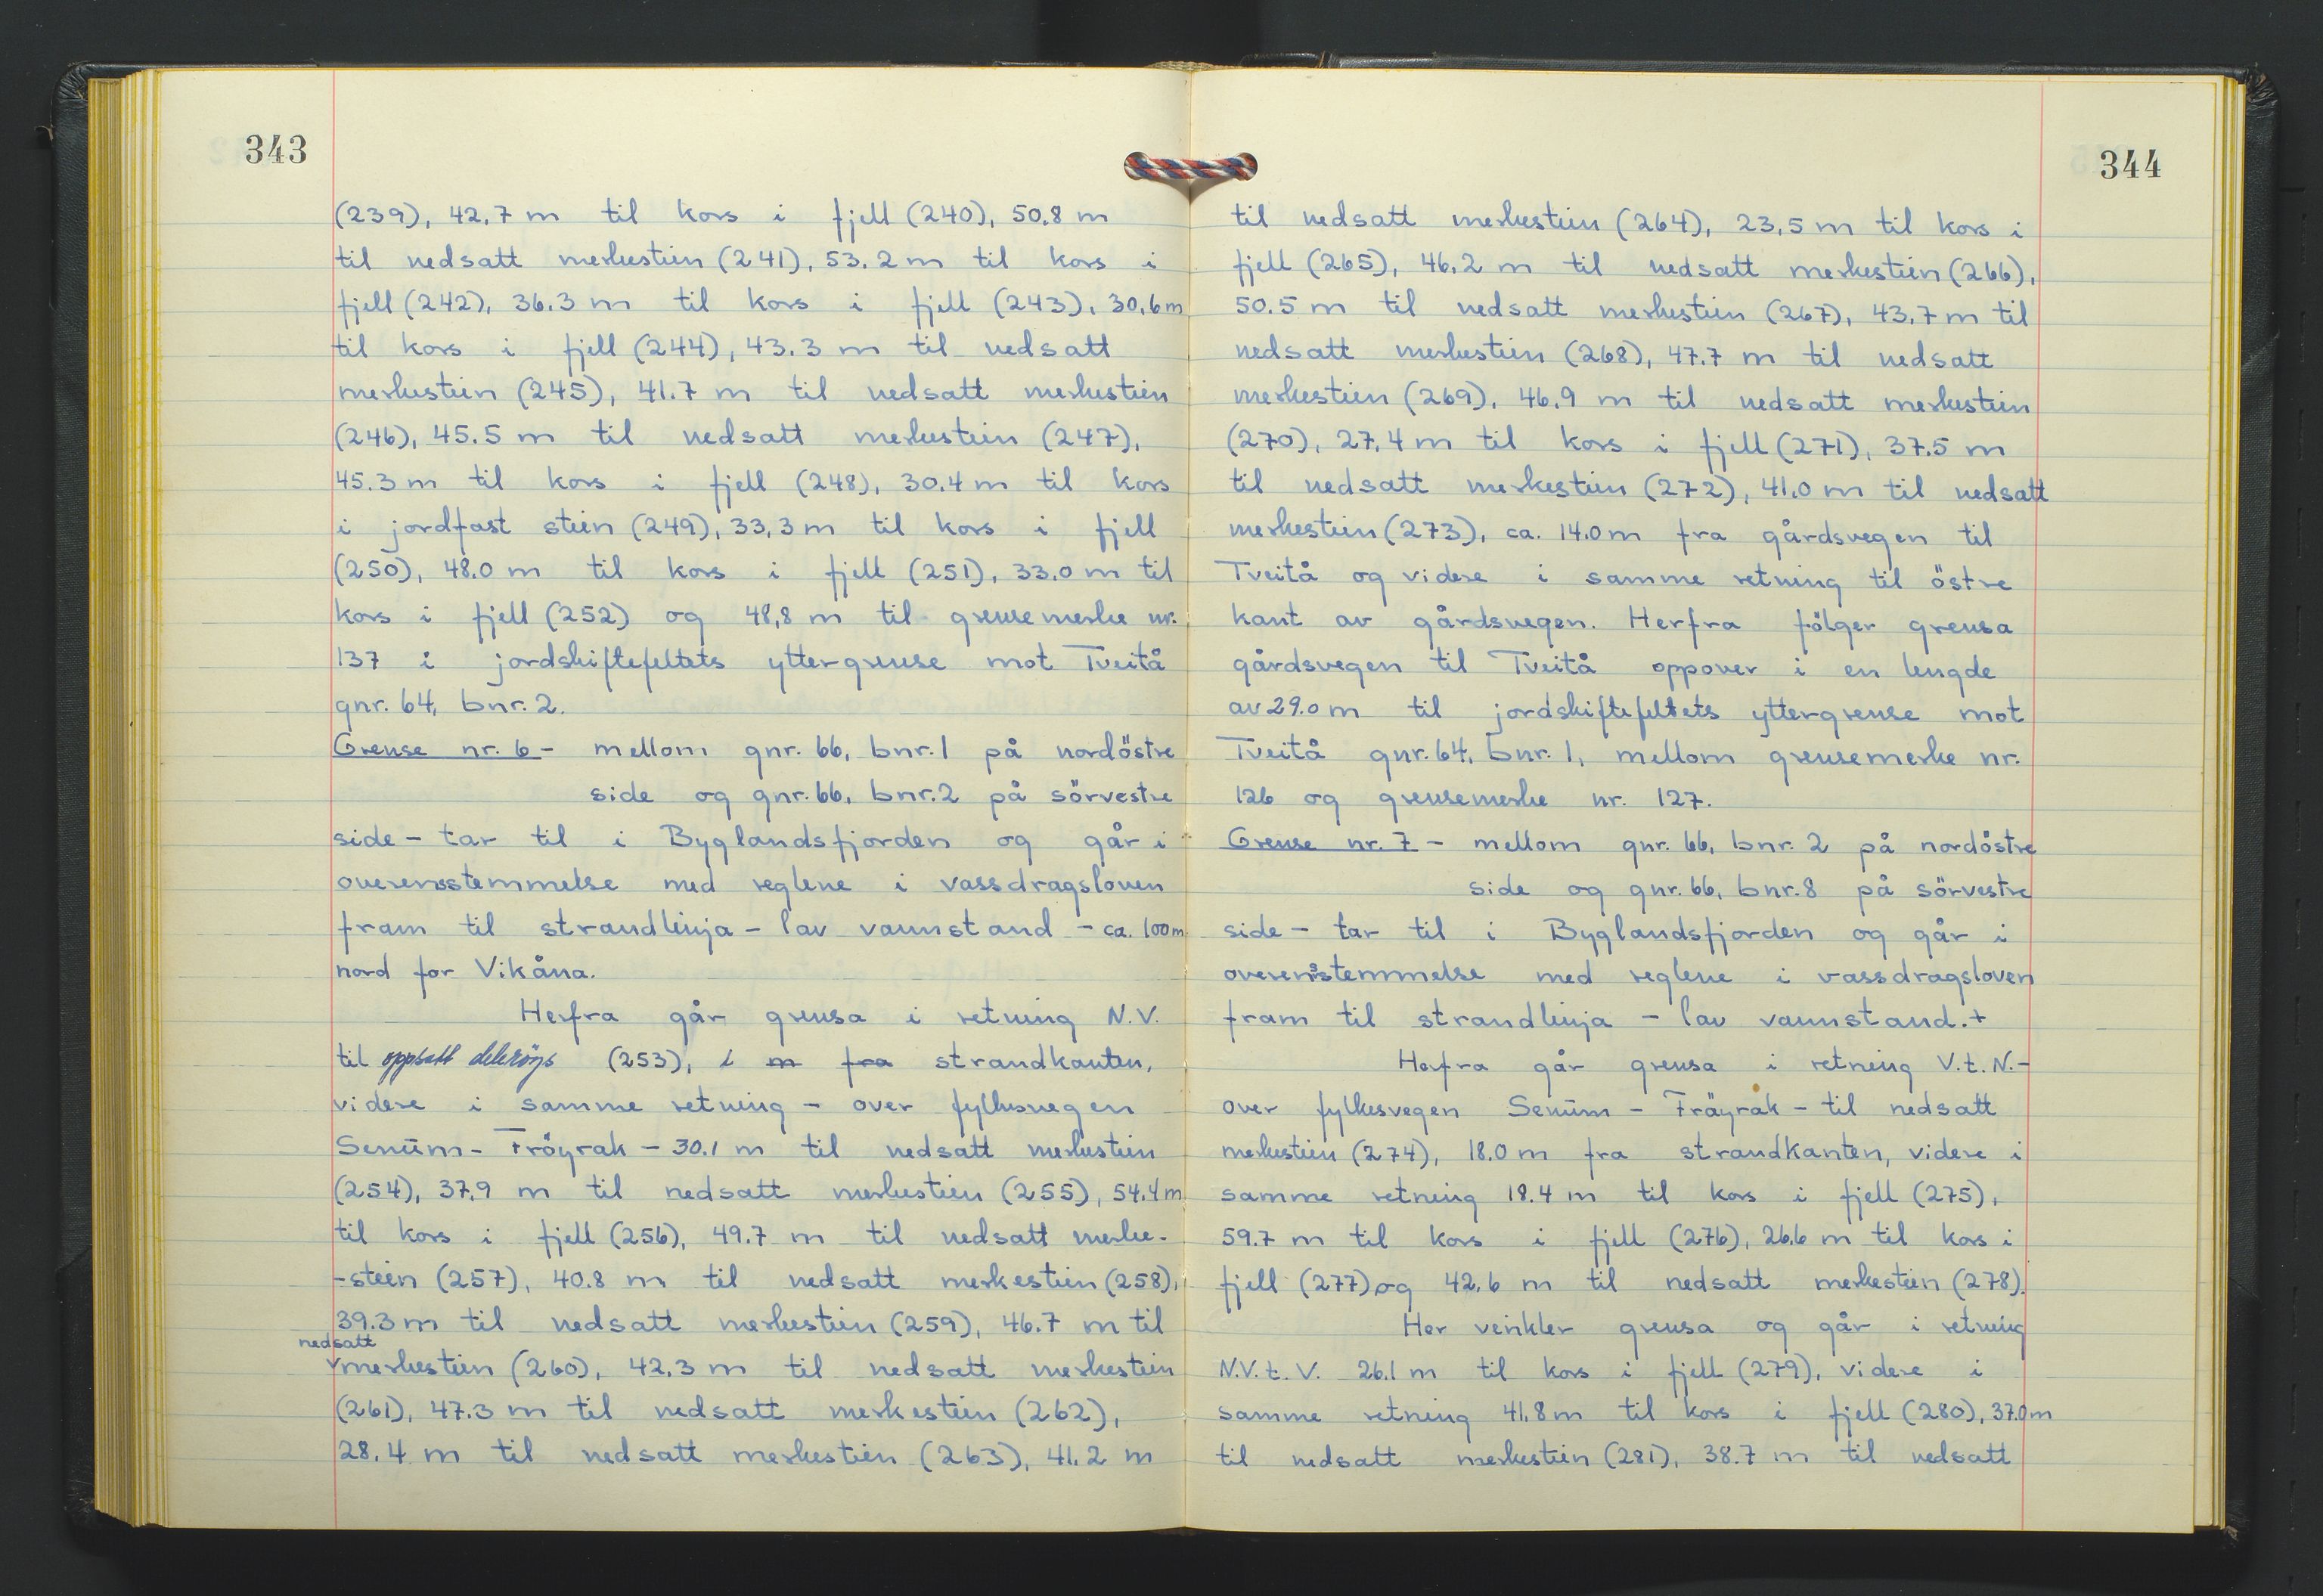 343
(239), 42.7 m til kors i fjell (240), 50.8 m
til nedsatt merkestein (241), 53.2 m til kors i
fjell (242), 36.3 m til kors i fjell (243), 30,6 m
til kors i fjell (244), 43.3 m til nedsatt
merkestein (245), 41.7 m til nedsatt merkestein
(246), 45.5 m til nedsatt merkestein (247),
45.3 m til kors i fjell (248), 30.4 m til kors
i jordfast stein (249), 33,3 m til kors i fjell
(250), 48.0 m til kors i fjell (251), 33.0 m til
kors i fjell (252) og 48,8 m til grensemerke nr.
137 i jordskiftefeltets yttergrense mot Tveitå
gnr. 64, bnr. 2.
Grense nr. 6 - mellom gnr. 66, bnr. 1 på nordöstre
side og gnr. 66, bnr. 2 på sörvestre
side - tar til i Byglandsfjorden og går i
overensstemmelse med reglene i vassdragsloven
fram til strandlinja - lav vannstand - ca. 100 m
nord for Vikåna.
Herfra går grensa i retning N.V.
til oppsatt deleröys (253), i m fra strandkanten,
videre i samme retning - over fylkesvegen
Senum - Fröyrak - 30.1 m til nedsatt merkestein
(254), 37,9 m til nedsatt merkestein (255), 54,4 m
til kors i fjell (256), 49.7 m til nedsatt merke-
-stein (257), 40.8 m til nedsatt merkestein (258),
39.3 m til nedsatt merkestein (259), 46.7 m til
nedsatt
merkestein (260), 42.3 m til nedsatt merkestein
(261), 47.3 m til nedsatt merkestein (262),
28.4 m til nedsatt merkestein (263), 41.2 m
344
til nedsatt merkestein (264), 23,5 m til kors i
fjell (265), 46.2 m til nedsatt merkestein (266),
50.5 m til nedsatt merkestein (267), 43,7 m til
nedsatt merkestein (268), 47.7 m til nedsatt
merkestein (269), 46,9 m til nedsatt merkestein
(270), 27,4 m til kors i fjell (271), 37.5 m
til nedsatt merkestein (272), 41,0 m til nedsatt
merkestein (273), ca. 14.0 m fra gårdsvegen til
Tveitå og videre i samme retning til östre
kant av gårdsvegen. Herfra fölger grensa
gårdsvegen til Tveitå oppover i en lengde
av 29.0 m til jordskiftefeltets yttergrense mot
Tveitå gnr. 64, bnr. 1, mellom grensemerke nr.
126 og grensemerke nr. 127.
Grense nr. 7 - mellom gnr. 66, bnr. 2 på nordöstre
side og gnr. 66, bnr. 8 på sörvestre
side - tar til i Byglandsfjorden og går i
overensstemmelse med reglene i vassdragsloven
fram til strandlinja - lav vannstand. +
Herfra går grensa i retning V.t.N. -
over fylkesvegen Senum - Fröyrak - til nedsatt
merkestein (274), 18.0 m fra strandkanten, videre i
samme retning 18.4 m til kors i fjell (275),
59.7 m til kors i fjell (276), 26.6 m til kors i
fjell (277) og 42,6 m til nedsatt merkestein (278).
Her vinkler grensa og går i retning
N.V.t.V. 26.1 m til kors i fjell (279), videre i
samme retning 41.8 m til kors i fjell (280), 37.0 m
til nedsatt merkestein (281), 38.7 m til nedsatt